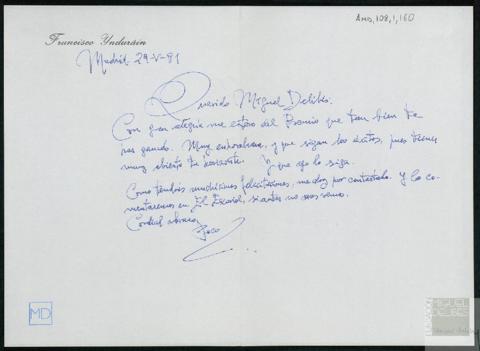 AMD,108,1,160
Francisco Ynduráin
Madrid 29-V-91
Querido Miguel Delibes:
Con gran alegría me entero del Premio que tan bien te
has ganado. Muy enhorabuena, y que sigan los éxitos, pues tienes
muy abierto tu horizonte. Y que yo lo siga.
Como tendrás muchísimas felicitaciones, me doy por contestado. Y lo co-
mentaremos en El Escorial, si antes no nos vemos.
Cordial abrazo
Paco
MD
FUNDACIÓN
MIGUEL
DELIBES